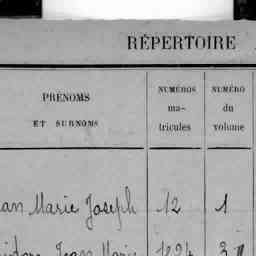 RÉPERTOIRE
PRÉNOMS
ET SURNOMS
NUMÉROS
ma-
tricules
NUMÉRO
du
volume
an Marie Joseph 12 1
Jean Marie 1824 3